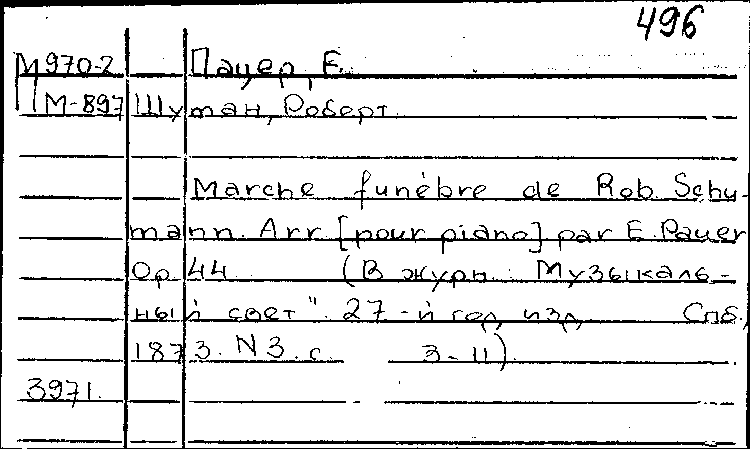 496
М970-2 Пауер, Е.
М-897 Шуман, Роберт.
Marche funèbre de Rob. Schu-
mann. Arr. [pour piano] par E. Pauer
Op. 44 (В журн.: Музыкаль-
ный свет". 27-й год изд. Спб.,
1873. N 3. с. 3-11).
3971.